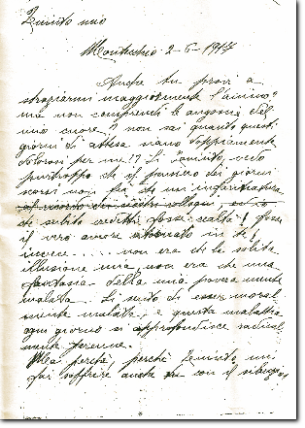 Zemito mio
2-6-1947
Anche tu provi a
straziarmi maggiormente l'animo?
ma non comprendi le angosce del
mio cuore? non sai quanto questi
giorni di attesa siano doppiamente
dolorosi per me!? Si vedo
purtroppo che il pensiero dei giorni
scorsi non fu che un
di subito credetti fosse realtà! forse
il vero amore ritornato in te!
invece..... non era che la solita
illusione mia, non era che una
fantasia della mia povera mente
malata. Si credo di esser moral
mente malata, e questa malattia
ogni giorno si approfondisce
mente
Ma perchè, perchè mi
fai soffrire anche con il